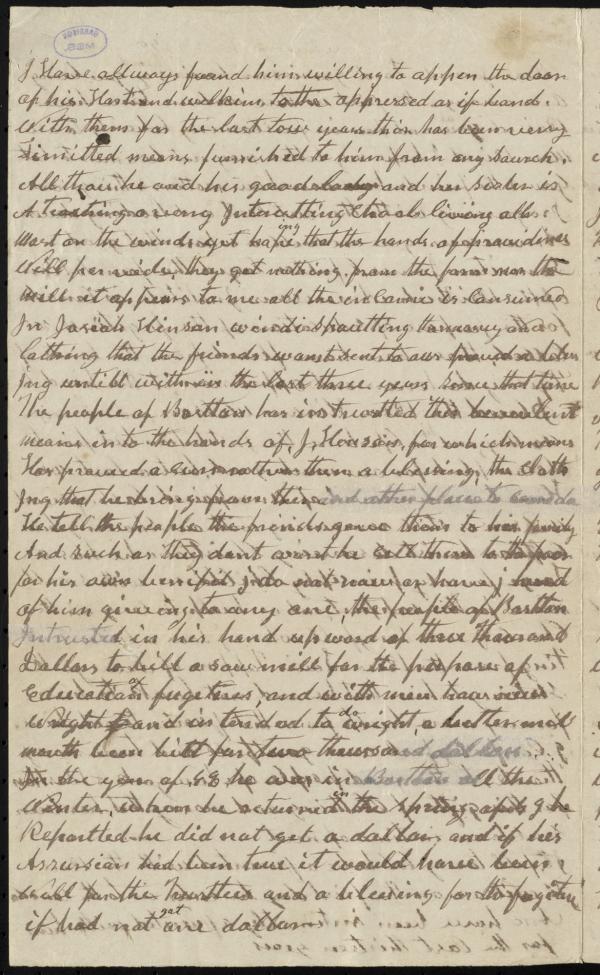 I Have allways found him willing to oppen the door
of his Hart and wellcim to the oppressed as if bound
With them for the last tow years thir has been verry
Limitted means furnished to him from any sourch.
All thou he and his good lady and her sister is
A teaching a verry Intersetting School living all
Most on the winds yet hopeing that the hands of providince
Will per vide, they get nothing from the farm nor the
Mill it appears to me all the in come is Consumed
In Josiah Hinson windi spoutting Harrarey and
Cathing that the friends wants sent to our
Ing untill within the last three years sinse that time
The people of Bostton has instrusted this benevilent
means in to the hands of, J. Hinson, for which means
Has proved a Curs rother then a blessing, the Cloth
Ing that he brings from thire and other places to Canada
He tell the people the friends gave thim to his family
And such as they dont want he sell them to the poor
for his own bennifit I do not know or have I heard
of him giveing to any one, the people of Bostton
Intrusted in his hand upword of three Thousand
Dollars to bild a saw mill for the purpose of
Education of fugetives, and with men how ar
Wright and in tended to do wright, a better mill
mought been bilt for two thousand dollars
In the year of 48 he was in Bostton all the
Winter, when he returned in the spring of 49 he
Reportted he did not get a dollar, and if his
Aszursian had been true it would have been
Well for the Trusttees and a blessing for the fugitive
if had not got one dollar